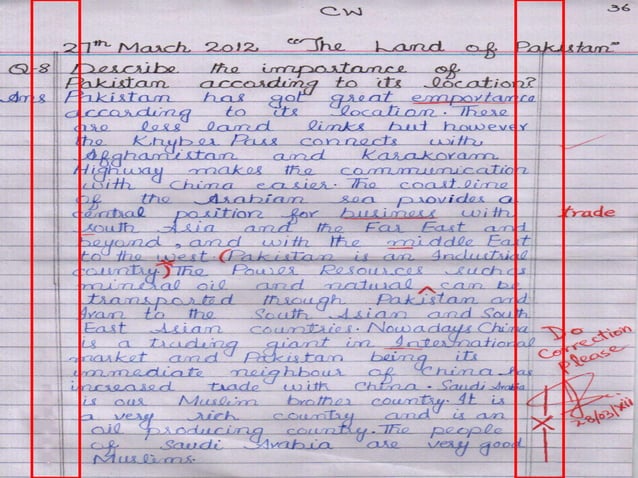 CW 36
27th March 2012 "The Land of Pakistan"
Q-8 Describe the importance of
Pakistan according to its location?
Ans Pakistan has got great emportance
according to its location. There
are less land links but however
the Khyber Pass connects with
Afghanistan and Karakoram
Highway makes the communication
with China easier. The coastline
of the Arabian sea provides a
central position for business with trade
south Asia and the Far East and
beyond, and with the middle East
to the west (Pakistan is an Industrial
country) The Power Resources such as
mineral oil and natural can be
transported through Pakistan and
Iran to the South Asian and South
East Asian countries. Nowadays China
is a trading giant in International
market and Pakistan being its
immediate neighbour of China has
increased trade with China. Saudi Arabia
is our Muslim brother country. It is
a very rich country and is an
oil producing country. The people
of Saudi Arabia are very good
Muslims.
Do
Correction
Please
28/03/xii